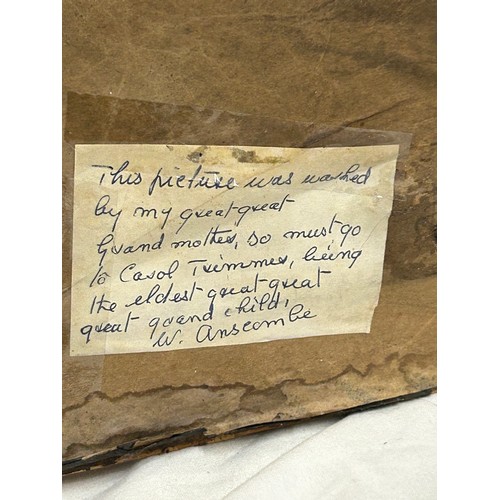 This picture was worked
by my great great
Grand mother, so must go
to Carol Trimmer, being
the eldest great great
great grand child,
W. Anscombe